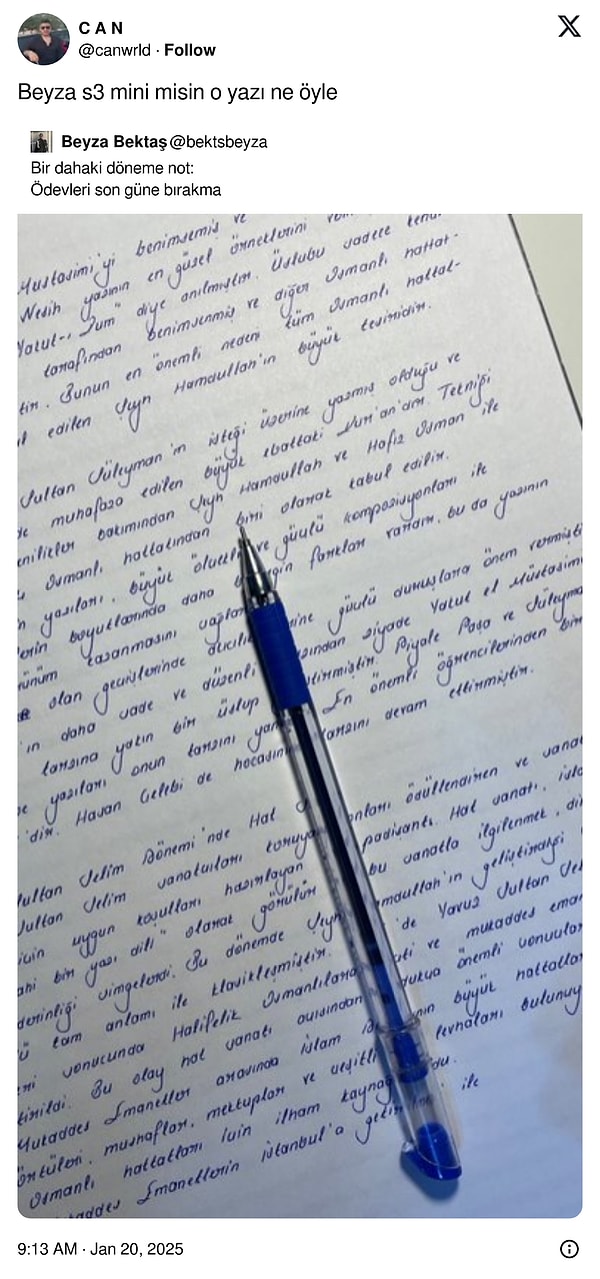 C A N
@canwrld · Follow
Beyza s3 mini misin o yazı ne öyle
Beyza Bektaş @bektsbeyza
Bir dahaki döneme not:
Ödevleri son güne bırakma
benimsemiş ve
Nesih yazının en güzel örneklerini
diye anılmıştır. Üslubu sadece
tarafından benimsenmiş ve diğer Osmanlı hattat-
tir. Bunun en önemli nedeni tüm Osmanlı hattat-
edilen Şeyh Hamdullah'ın büyük tesiridir.
Sultan Süleyman'ın isteği üzerine yazmış olduğu ve
muhafaza edilen büyük ebattaki Kur'an'dır. Tekniği
bakımından Şeyh Hamdullah ve Hafız Osman ile
Osmanlı hattatından biri olarak kabul edilir.
yazıları, büyük ve güçlü kompozisyonları ile
boyutlarında daha farkları vardır, bu da yazının
kazanmasını güçlü duruşlara önem vermişti
olan geçişlerinde ziyade Yakut el Müstasimi
ın daha sade ve düzenli Piyale Paşa ve Süleyma
tarzına yakın bir üslup En önemli öğrencilerinden bir
yazıları onun tarzını
'dir. Hasan Çelebi de hocasının tarzını devam ettirmiştir.
Sultan Selim Dönemi'nde Hat
Sultan Selim sanatçıları koruyan padişahtı. Hat sanatı,
için uygun koşulları hazırlayan bu sanatla ilgilenmek,
bir yazı dili" olarak görülür geliştirdiği
derinliği simgelerdi. Bu dönemde Şeyh 'de Yavuz Sultan Sel
tam anlamı ile klasikleşmiştir. ve mukaddes eman
sonucunda Halifelik Osmanlılara önemli sonuçlar
Bu olay hat sanatı açısından büyük hattatlar
Mukaddes Emanetler arasında İslam levhaları bulunuy
örtüleri, mushaflar, mektuplar ve çeşitli
Osmanlı hattatları için ilham ile
Emanetlerin İstanbul'a
9:13 AM · Jan 20, 2025